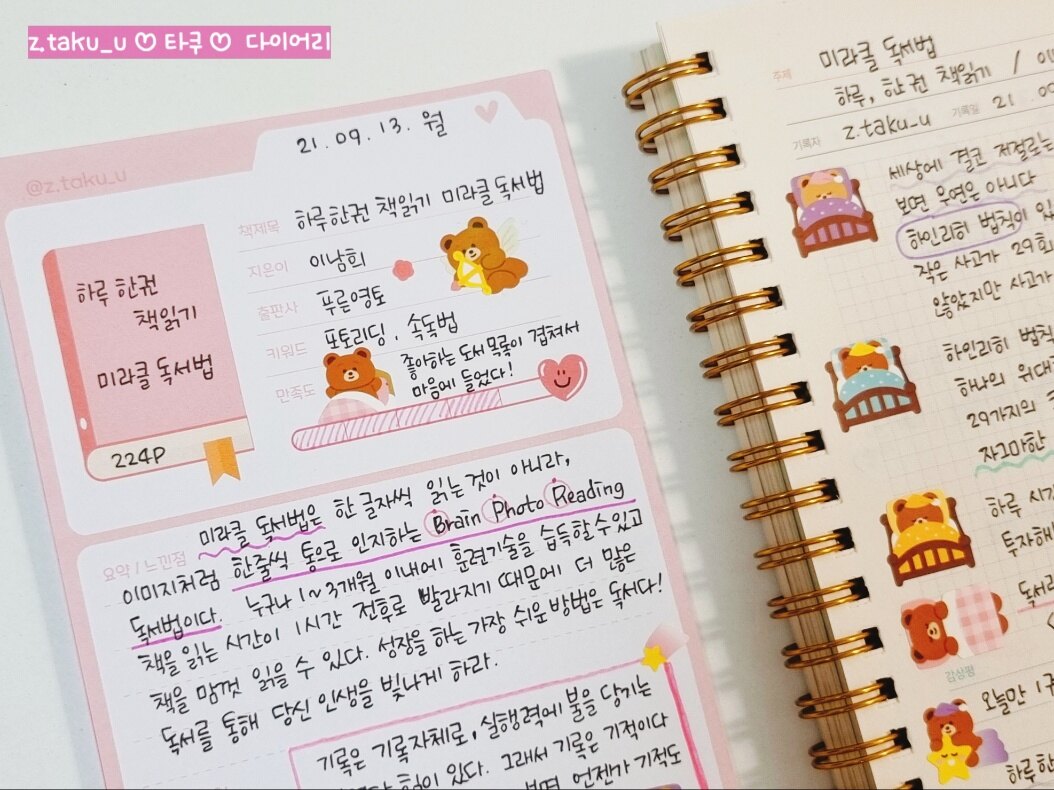 z.taku_u ♡ 타쿠 ♡ 다이어리
21. 09. 13. 월
@z.taku_u
책제목 하루 한권 책읽기 미라클 독서법
지은이 이남희
출판사 푸른영토
키워드 포토리딩, 속독법
만족도 좋아하는 도서 목록이 겹쳐서
마음에 들었다!
하루 한권
책읽기
미라클 독서법
224P
요약 / 느낀점
미라클 독서법은 한 글자씩 읽는 것이 아니라,
이미지처럼 한줄씩 통으로 인지하는 Brain Photo Reading
독서법이다. 누구나 1~3개월 이내에 훈련기술을 습득할 수 있고
책을 읽는 시간이 1시간 전후로 빨라지기 때문에 더 많은
책을 맘껏 읽을 수 있다. 성장을 하는 가장 쉬운 방법은 독서다!
독서를 통해 당신 인생을 빛나게 하라.
기록은 기록자체로, 실행력에 불을 당기는
힘이 있다. 그래서 기록은 기적이다
보면 언젠가 기적도
주제 미라클 독서법
하루, 한권 책읽기 / 이
기록자 z.taku_u 기록일 21. 09
세상에 결코 저절로는
보면 우연은 아니다
하인리히 법칙이 있
작은 사고가 29회
않았지만 사고가
하인리히 법칙
하나의 위대
29가지의
자그마한
하루 시간
투자해
독서
감상평
오늘만 1권
하루한